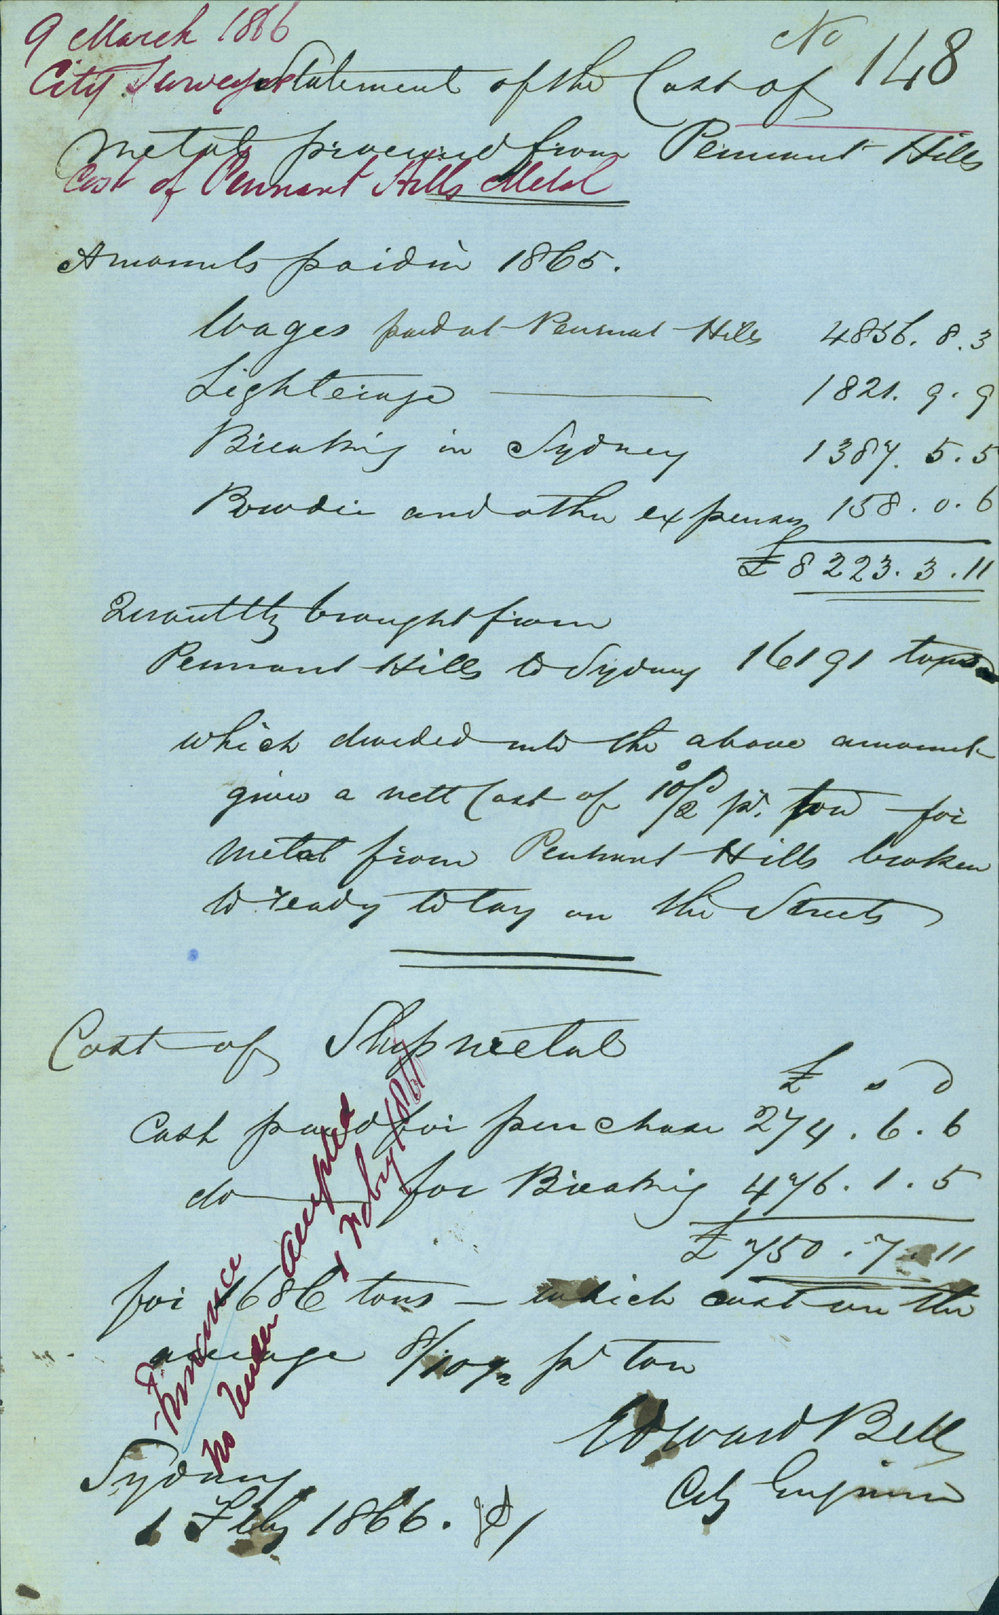 9 March 1866
No 148
City Surveyor
Statement of the Cost of
Metal procured from Pennant Hills
Cost of Pennant Hills Metal
Amounts paid in 1865.
Wages paid at Pennant Hills 4856. 8. 3
Lighterage 1821. 9. 9
Breaking in Sydney 1387. 5. 5
Powder and other expenses 158. 0. 6
£8223. 3. 11
Quantity brought from
Pennant Hills to Sydney 16191 tons
which divided into the above amount
gives a nett Cost of 10/2 pr. ton for
metal from Pennant Hills broken
to ready to lay on the Streets
Cost of Ship metal
£ s d
Cash paid for purchase 274. 6. 6
do for Breaking 476. 1. 5
£750. 7. 11
for 1686 tons — which cost on the
average 8/10 3/4 pr ton
Finance
No tender accepted
Edward Bell
City Engineer
Sydney
1 Feby 1866.